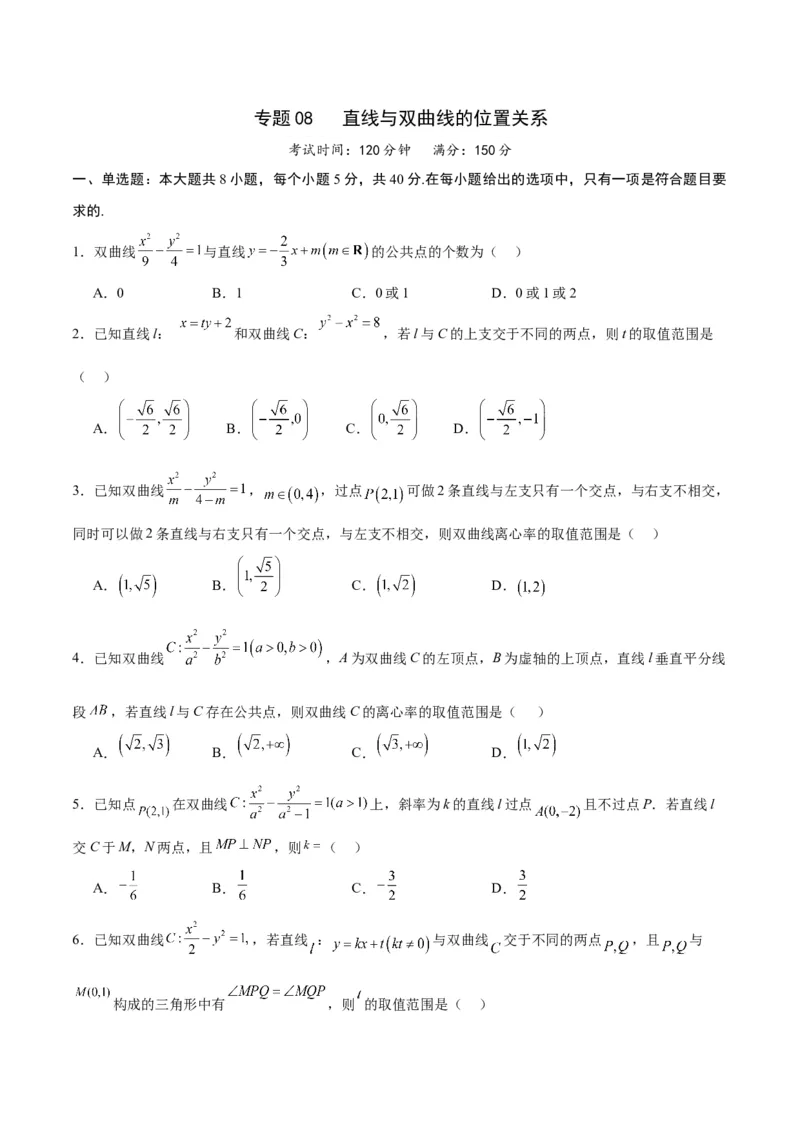 专题08 直线与双曲线的位置关系
考试时间：120分钟 满分：150分
一、单选题：本大题共8小题，每个小题5分，共40分.在每小题给出的选项中，只有一项是符合题目要
求的.
1．双曲线 x²/9 − y²/4 = 1 与直线 y = −2/3 x + m (m∈R) 的公共点的个数为（ ）
A．0 B．1 C．0或1 D．0或1或2
2．已知直线l： x = ty + 2 和双曲线C： y² − x² = 8 ，若l与C的上支交于不同的两点，则t的取值范围是
（ ）
A．(−√6/2, √6/2) B．(−√6/2, 0) C．(0, √6/2) D．(−√6/2, −1)
3．已知双曲线 x²/m − y²/(4−m) = 1， m∈(0,4) ，过点 P(2,1) 可做2条直线与左支只有一个交点，与右支不相交，
同时可以做2条直线与右支只有一个交点，与左支不相交，则双曲线离心率的取值范围是（ ）
A．(1, √5) B．(1, √5/2) C．(1, √2) D．(1,2)
4．已知双曲线 C: x²/a² − y²/b² = 1(a>0,b>0) ，A为双曲线C的左顶点，B为虚轴的上顶点，直线l垂直平分线
段 AB ，若直线l与C存在公共点，则双曲线C的离心率的取值范围是（ ）
A．(√2, √3) B．(√2, +∞) C．(√3, +∞) D．(1, √2)
5．已知点 P(2,1) 在双曲线 C: x²/a² − y²/(a²−1) = 1(a>1) 上，斜率为k的直线l过点 A(0,−2) 且不过点P．若直线l
交C于M，N两点，且 MP⊥NP ，则 k =（ ）
A．−1/6 B．1/6 C．−3/2 D．3/2
6．已知双曲线 C: x²/2 − y² = 1, ，若直线 l ： y = kx + t(kt≠0) 与双曲线 C 交于不同的两点 P,Q ，且 P,Q 与
M(0,1) 构成的三角形中有 ∠MPQ = ∠MQP ，则 t 的取值范围是（ ）